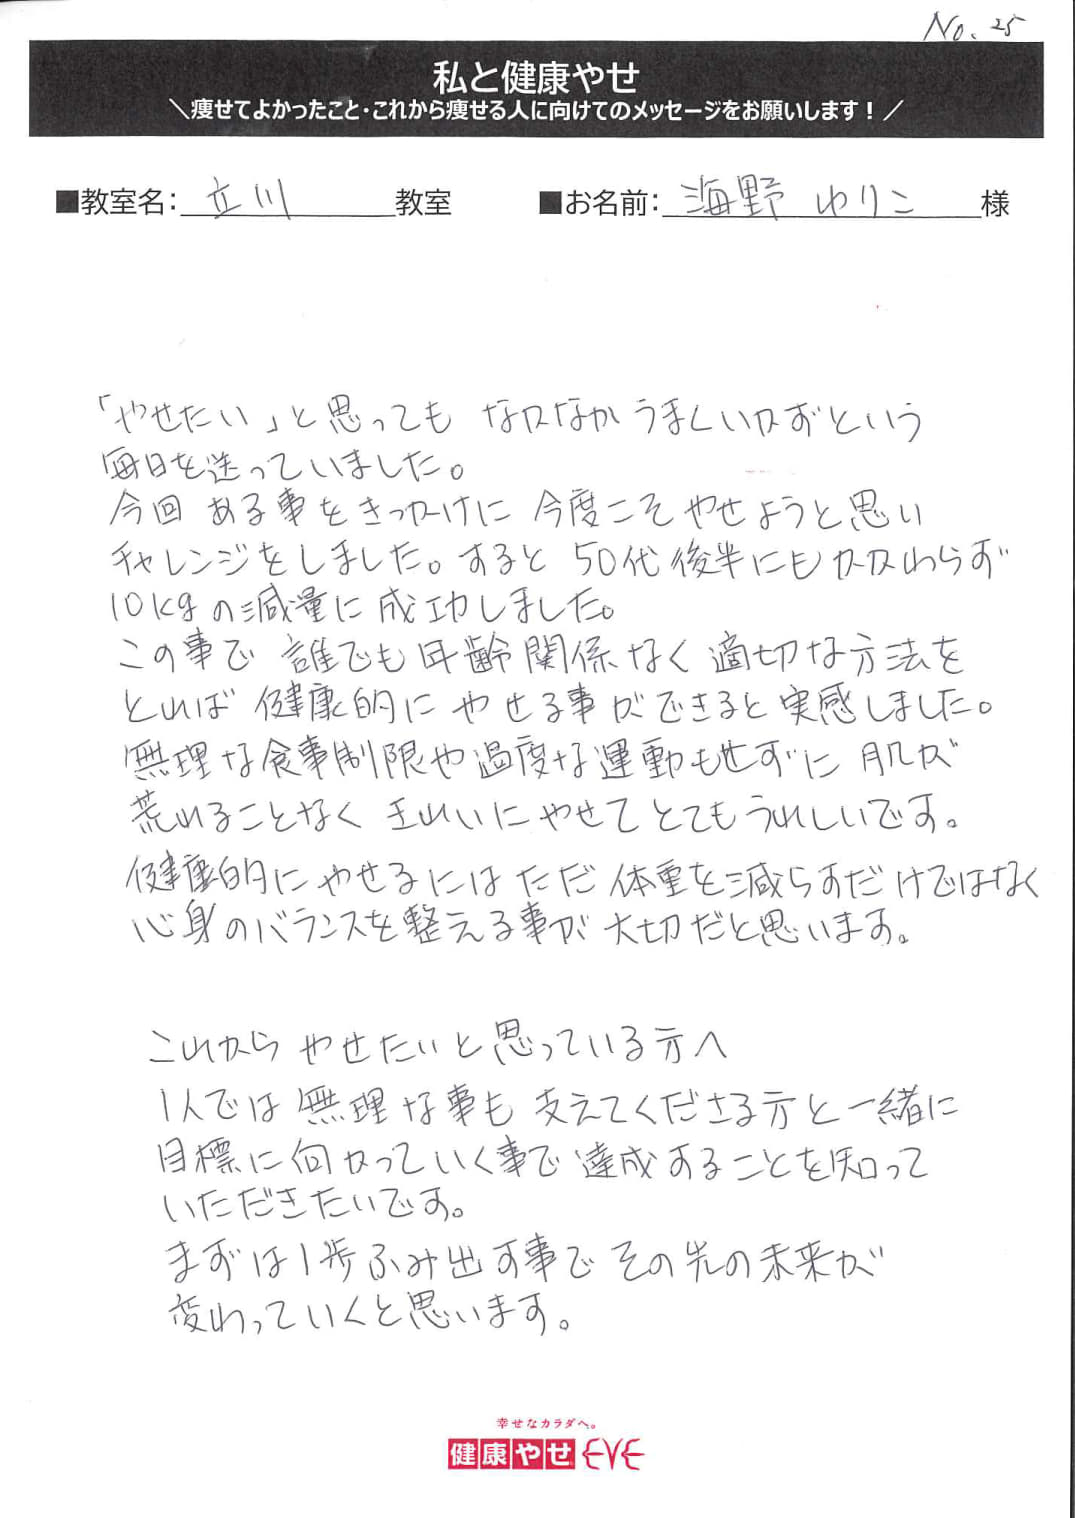 No. 25
私と健康やせ
＼痩せてよかったこと・これから痩せる人に向けてのメッセージをお願いします！／
■教室名：立川 教室 ■お名前：海野 ゆりこ 様
「やせたい」と思っても なかなか うまくいかずという
毎日を送っていました。
今回 ある事をきっかけに 今度こそ やせようと思い
チャレンジをしました。すると 50代後半にもかかわらず
10kgの減量に成功しました。
この事で 誰でも年齢関係なく 適切な方法を
とれば 健康的に やせる事ができると実感しました。
無理な食事制限や過度な運動もせずに 肌が
荒れることなく きれいに やせて とてもうれしいです。
健康的に やせるには ただ 体重を減らすだけではなく
心身のバランスを整える事が 大切だと思います。
これから やせたいと思っている方へ
1人では 無理な事も 支えてくださる方と一緒に
目標に向かっていく事で 達成することを知って
いただきたいです。
まずは1歩ふみ出す事で その先の未来が
変わっていくと思います。
幸せなカラダへ。
健康やせ EVE